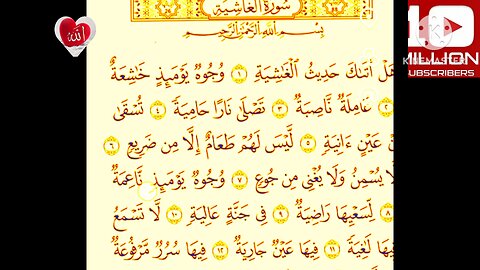 الله
سُورَةُ الْغَاشِيَةِ
بِسْمِ اللهِ الرَّحْمٰنِ الرَّحِيمِ
هَلْ أَتَىٰكَ حَدِيثُ الْغَٰشِيَةِ ١ وُجُوهٌ يَوْمَئِذٍ خَٰشِعَةٌ
٢ عَامِلَةٌ نَّاصِبَةٌ ٣ تَصْلَىٰ نَارًا حَامِيَةً ٤ تُسْقَىٰ
نْ عَيْنٍ ءَانِيَةٍ ٥ لَّيْسَ لَهُمْ طَعَامٌ إِلَّا مِن ضَرِيعٍ ٦
لَّا يُسْمِنُ وَلَا يُغْنِى مِن جُوعٍ ٧ وُجُوهٌ يَوْمَئِذٍ نَّاعِمَةٌ
٨ لِّسَعْيِهَا رَاضِيَةٌ ٩ فِى جَنَّةٍ عَالِيَةٍ ١٠ لَّا تَسْمَعُ
فِيهَا لَٰغِيَةً ١١ فِيهَا عَيْنٌ جَارِيَةٌ ١٢ فِيهَا سُرُرٌ مَّرْفُوعَةٌ
10
KINEMASTER
MILLION
SUBSCRIBERS